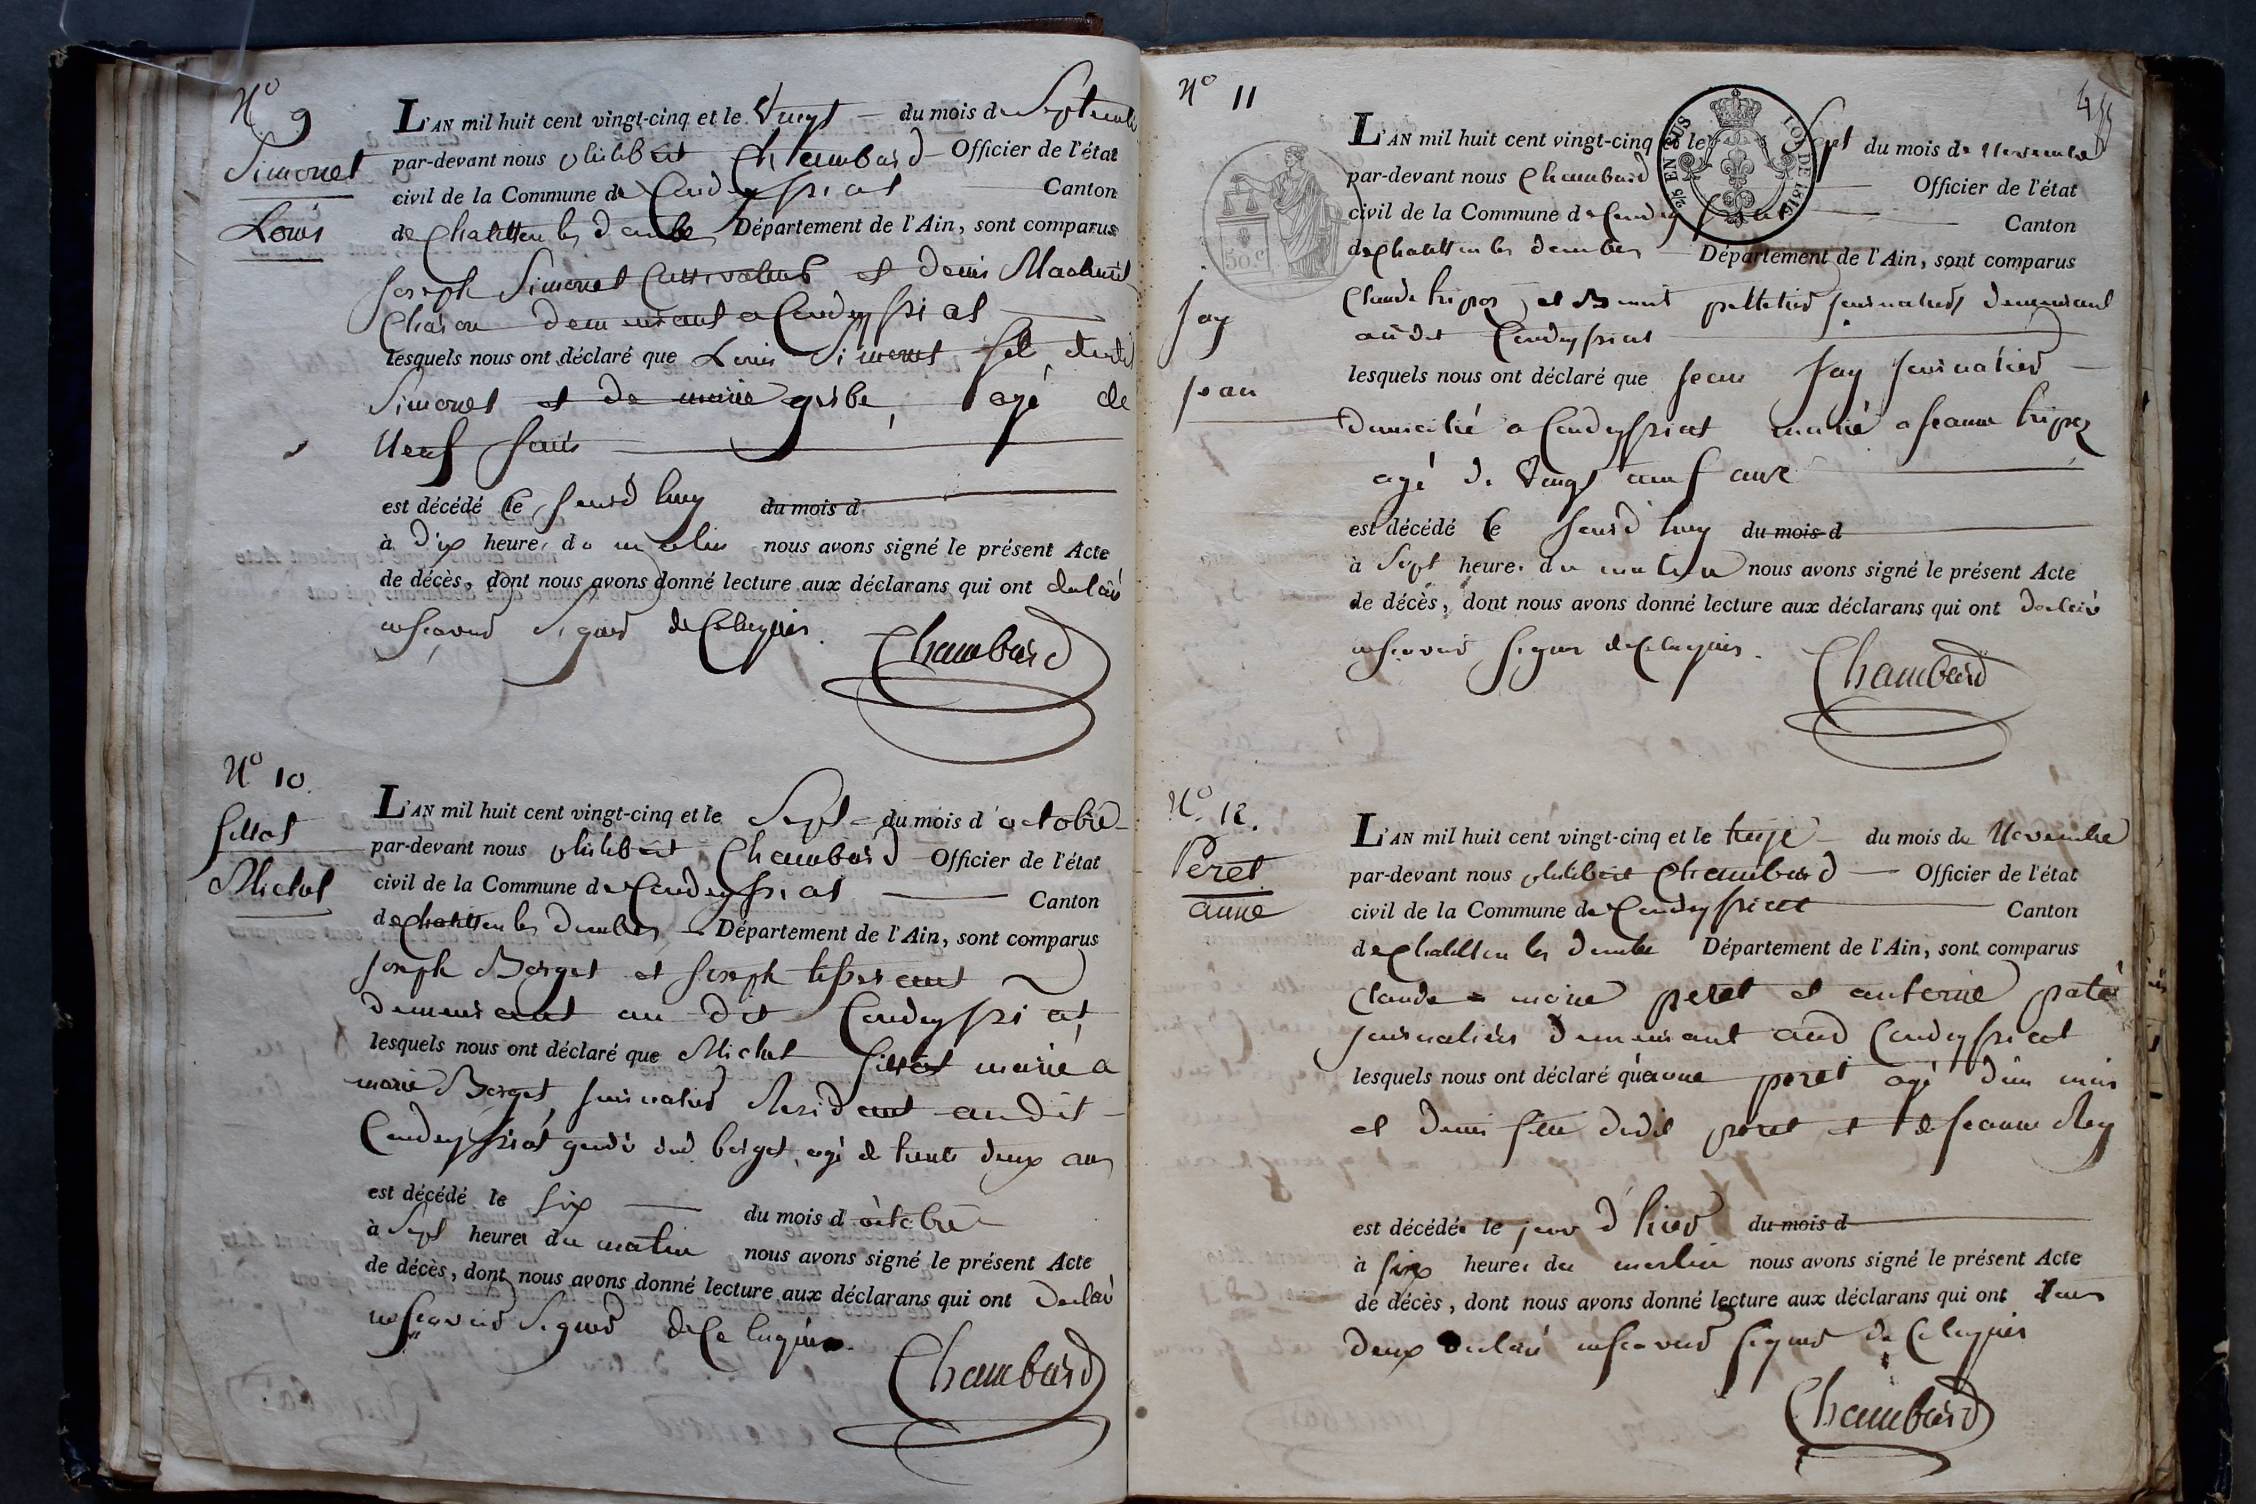 N° 9
Simonet
Louis
L'AN mil huit cent vingt-cinq et le Vingt du mois de Septembre
par-devant nous philibert Chambard Officier de l'état
civil de la Commune de Condeyssiat Canton
de Chatillon les Dombes Département de l'Ain, sont comparus
Joseph Simonet Cultivateur et denis
demeurant a Condeyssiat
lesquels nous ont déclaré que Louis Simonet fils dudit
Simonet et de marie gerbe, agé de
Neuf jours
est décédé le jourd huy du mois d
à Dix heures du matin nous avons signé le présent Acte
de décès, dont nous avons donné lecture aux déclarans qui ont declaré
ne scavoir signer de Ce enquis.
Chambard
N° 10.
fillot
Michel
L'AN mil huit cent vingt-cinq et le Sept du mois d'octobre
par-devant nous philibert Chambard Officier de l'état
civil de la Commune de Condeyssiat Canton
de Chatillon les Dombes Département de l'Ain, sont comparus
Joseph Berget et Joseph
demeurant au dit Condeyssiat
lesquels nous ont déclaré que Michel fillot marié a
marie Berget, journalier Resident audit
Condeyssiat gendre dud berget, agé de trente deux ans
est décédé le Six du mois d'octobre
à Sept heures du matin nous avons signé le présent Acte
de décès, dont nous avons donné lecture aux déclarans qui ont Declaré
ne scavoir Signer de Ce enquis.
Chambard
N° 11
Jay
jean
50.C
2/5 EN SUS LOI DE 1816
L'AN mil huit cent vingt-cinq et le Sept du mois de Novembre
par-devant nous Chambard Officier de l'état
civil de la Commune de Condeyssiat Canton
de Chatillon les Dombes Département de l'Ain, sont comparus
Claude tripoz, et Benoit pelletier journaliers demeurant
audit Condeyssiat
lesquels nous ont déclaré que jean Jay journalier
domicilié a Condeyssiat marié a jeanne tripoz
agé de Vingt neuf ans
est décédé le jourd huy du mois d
à Sept heures du matin nous avons signé le présent Acte
de décès, dont nous avons donné lecture aux déclarans qui ont declaré
ne scavoir signer de Ce enquis.
Chambard
N°. 12.
Peret
anne
L'AN mil huit cent vingt-cinq et le treize du mois de Novembre
par-devant nous philibert Chambard Officier de l'état
civil de la Commune de Condeyssiat Canton
de Chatillon les Dombes Département de l'Ain, sont comparus
Claude marie peret et antoine
journaliers demeurant aud Condeyssiat
lesquels nous ont déclaré qu'anne peret agé d'un mois
et demi fille dudit peret et de jeanne Rey
est décédée le jour d'hier du mois d
à six heures du matin nous avons signé le présent Acte
de décès, dont nous avons donné lecture aux déclarans qui ont tous
deux declaré ne scavoir signer de Ce enquis
Chambard